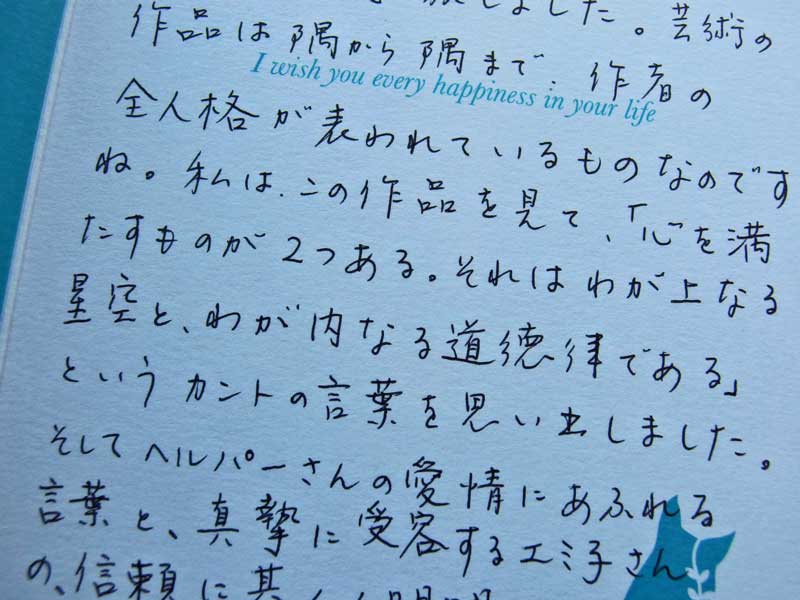 しました。芸術の
作品は隅から隅まで、作者の
I wish you every happiness in your life
全人格が表われているものなのです
ね。私は、この作品を見て、「心を満
たすものが2つある。それはわが上なる
星空と、わが内なる道徳律である」
というカントの言葉を思い出しました。
そしてヘルパーさんの愛情にあふれる
言葉と、真摯に受容するエミ子さん
の、信頼に基